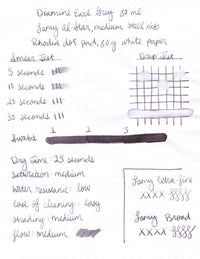 Diamine Earl Grey 80 ml
Lamy al Star, medium steel nib
Rhodia dot pad, 80 g white paper
Smear Test
Drip Test
5 seconds
10 seconds
20 seconds
30 seconds
Swabs 1 2 3
Dry Time: 25 seconds
Saturation: medium
Water resistance: low
Ease of cleaning: easy
Shading: medium
Flow: medium
Lamy extra-fine
xxxx
Lamy Broad
xxxx